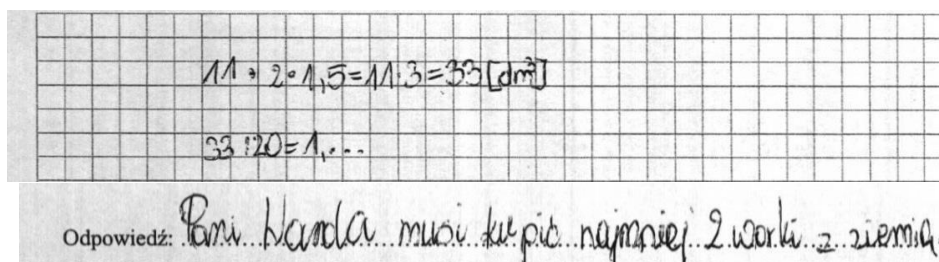 11 · 2 · 1,5 = 11 · 3 = 33 [dm³]
33 : 20 = 1, . . .
Odpowiedź: Pani Wanda musi kupić najmniej 2 worki z ziemią